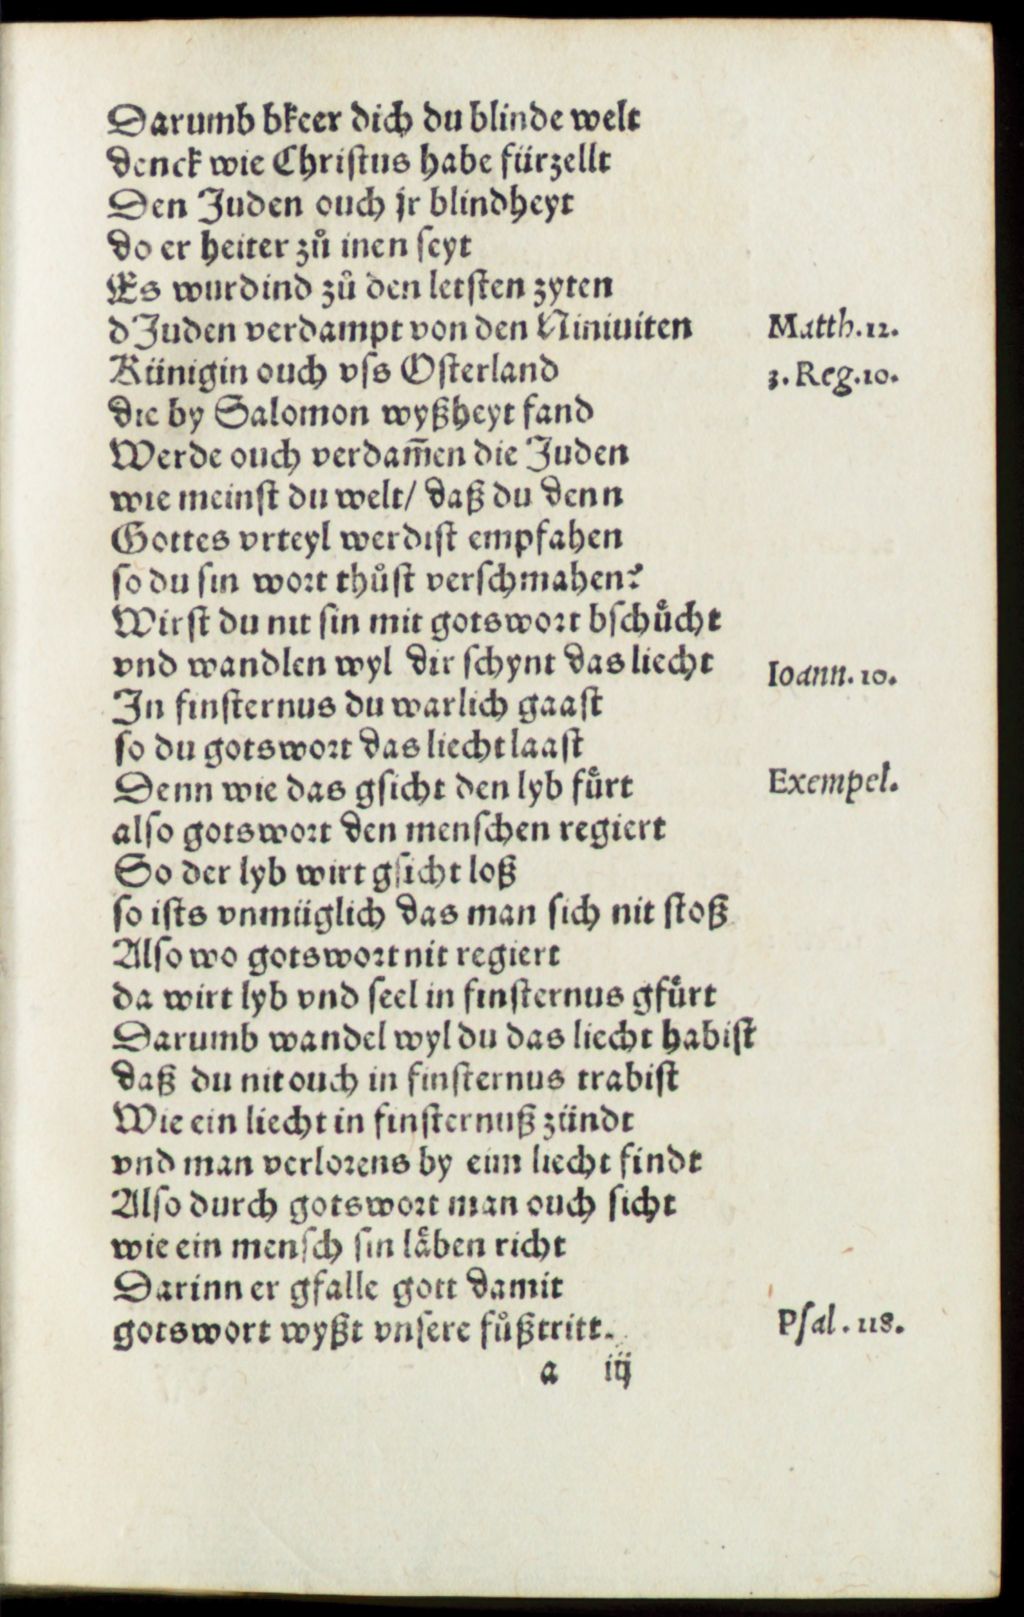 Darumb bkeer dich du blinde welt
denck wie Christus habe fürzellt
Den Juden ouch jr blindheyt
do er heiter zů inen seyt
Es wurdind zů den letsten zyten
d Juden verdampt von den Niniuiten
Matth. 12.
Künigin ouch vss Osterland
3. Reg. 10.
die by Salomon wyßheyt fand
Werde ouch verdam̄en die Juden
wie meinst du welt/ daß du denn
Gottes vrteyl werdist empfahen
so du sin wort thůst verschmahen?
Wirst du nit sin mit gotswort bschůcht
vnd wandlen wyl dir schynt das liecht
Ioann. 10.
In finsternus du warlich gaast
so du gotswort das liecht laast
Denn wie das gsicht den lyb fuͤrt
Exempel.
also gotswort den menschen regiert
So der lyb wirt gsicht loß
so ists vnmüglich das man sich nit stoß
Also wo gotswort nit regiert
da wirt lyb vnd seel in finsternus gfuͤrt
Darumb wandel wyl du das liecht habist
daß du nit ouch in finsternus trabist
Wie ein liecht in finsternuß zündt
vnd man verlorens by eim liecht findt
Also durch gotswort man ouch sicht
wie ein mensch sin låben richt
Darinn er gfalle gott damit
gotswort wyßt vnsere fůßtritt.
Psal. 118.
a iij